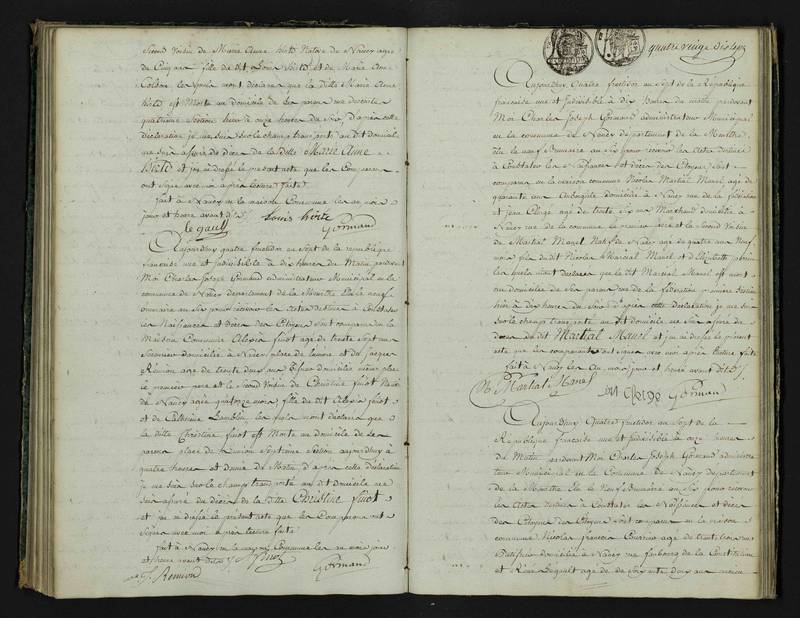 second voisin de Marie Anne hirté Native de Nancy agée
de Cinq ans fille de dit Louis hirté et de Marie Anne
les quels mont déclaré que la ditte Marie Anne
hirté est Morte au domicile de Ses parens rue
quatrieme Section hier à onze heures du Soir, d'après cette
déclaration je me suis sur le champ transporté au dit domicile
me suis assuré du déces de la ditte Marie Anne
hirté et j'ai dressé le present acte que les Comparans
ont signé avec moi après lecture faite
fait à Nancy en la maison Commune les an mois
jour et heure avant dits
le gault Louis hirte Gormand
Aujourdhuy quatre fructidor an Sept de la republique
francaise une et indivisible à dix heures du Matin pardevant
Moi Charles Joseph Gormand administrateur Municipal en la
commune de Nancy departement de la Meurthe Elu le neuf
brumaire an Six pour recevoir les Actes destinés à Constater
les Naissances et déces des Citoyens sont comparus en la
Maison Commune Alexis finot age de trente Sept ans
domicilié à Nancy place de et Jacques
Rémion age de trente deux ans domicilié même place
le premier pere et le Second Voisin de Christine finot Native
de Nancy agée quatorze mois fille de dit Alexis finot
et de Catherine les quels mont déclaré que
la ditte Christine finot est Morte au domicile de Ses
parens place de Septieme Section aujourdhuy à
quatre heures et demie du Matin, d'apres cette déclaration
je me suis sur le champ transporté au dit domicile me
suis assuré du déces de la ditte Christine finot
et j'ai dressé le présent acte que les Comparans ont
Signé avec moi après lecture faite
fait à Nancy en la maison Commune les an mois jour
et heure avant dits
J. Remion finot Gormand
quatre vingt dix sept
Aujourdhuy, Quatre fructidor an Sept de la République
francaise une et Indivisible à dix heures du matin pardevant
Moi Charles Joseph Gormand administrateur Municipal
en la commune de Nancy departement de la Meurthe
Elu le neuf Brumaire an Six pour recevoir les Actes destinés
à Constater les Naissances et déces des Citoyens Sont
comparus en la maison commune Nicolas Martial Manel age de
quarante ans domicilié à Nancy rue de la fédération
et Jean Clerge age de trente Six ans Marchand domicilié à
Nancy rue de la commune le premier pere et le Second Voisin
de Martial Manel Natif de Nancy age de quatre ans Neuf
mois fils du dit Nicolas Marcial Manel et d'Elizabeth
les quels mont declaré que le dit Marcial Manel est mort
au domicile de Ses parens rue de la fédération premiere Section
hier à dix heures du Soir d'après cette déclaration je me suis
sur le champ transporté au dit domicile me suis assuré du
déces du dit Martial Manel et j'ai dressé le présent
acte que les comparans ont signé avec moi après lecture faite
fait à Nancy les an, mois jour et heure avant dits
N Martial Manel Jn Clerge Gormand
Aujourdhuy Quatre fructidor an Sept de la
République francaise une et indivisible à onze heures
du Matin pardevant Moi Charles Joseph Gormand administra
teur Municipal en la Commune de Nancy departement
de la Meurthe Elu le neuf Brumaire an Six pour recevoir
les Actes destinés à Constater les Naissances et déces
des Citoyens Sont comparus en la maison
commune Nicolas francois age de trente trois ans
domicilié à Nancy faubourg de la Constitution
et age de Soixante deux ans